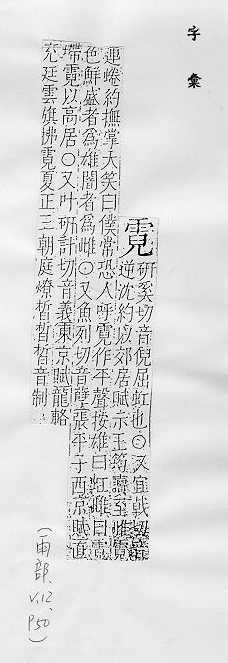 字彙
霓
研奚切音倪屈虹也○又宜戟切音
逆沈約以郊居賦示王筠讀至雌霓
連蜷約撫掌大笑曰僕常恐人呼霓作平聲按雄曰虹雌曰霓
色鮮盛者爲雄闇者爲雌○又魚列切音孽張平子西京賦直
墆霓以高居○又叶研計切音義東京賦龍輅
充廷雲旗拂霓夏正三朝庭燎晢晢晢音制
(雨部、V.12、P50)